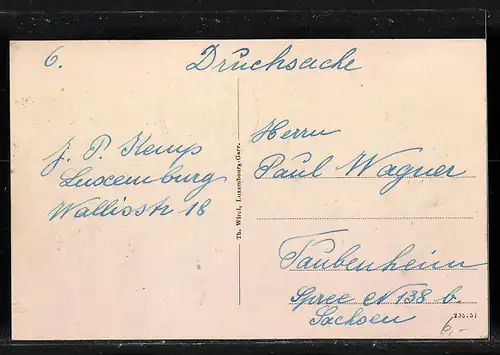 6.
Drucksache
J. P. Kemp
Luxemburg
Wallisstr 18
Th. Wirol, Luxembourg-Gare.
Herrn
Paul Wagner
Taubenheim
Spree N 138 b.
Sachsen
6,-